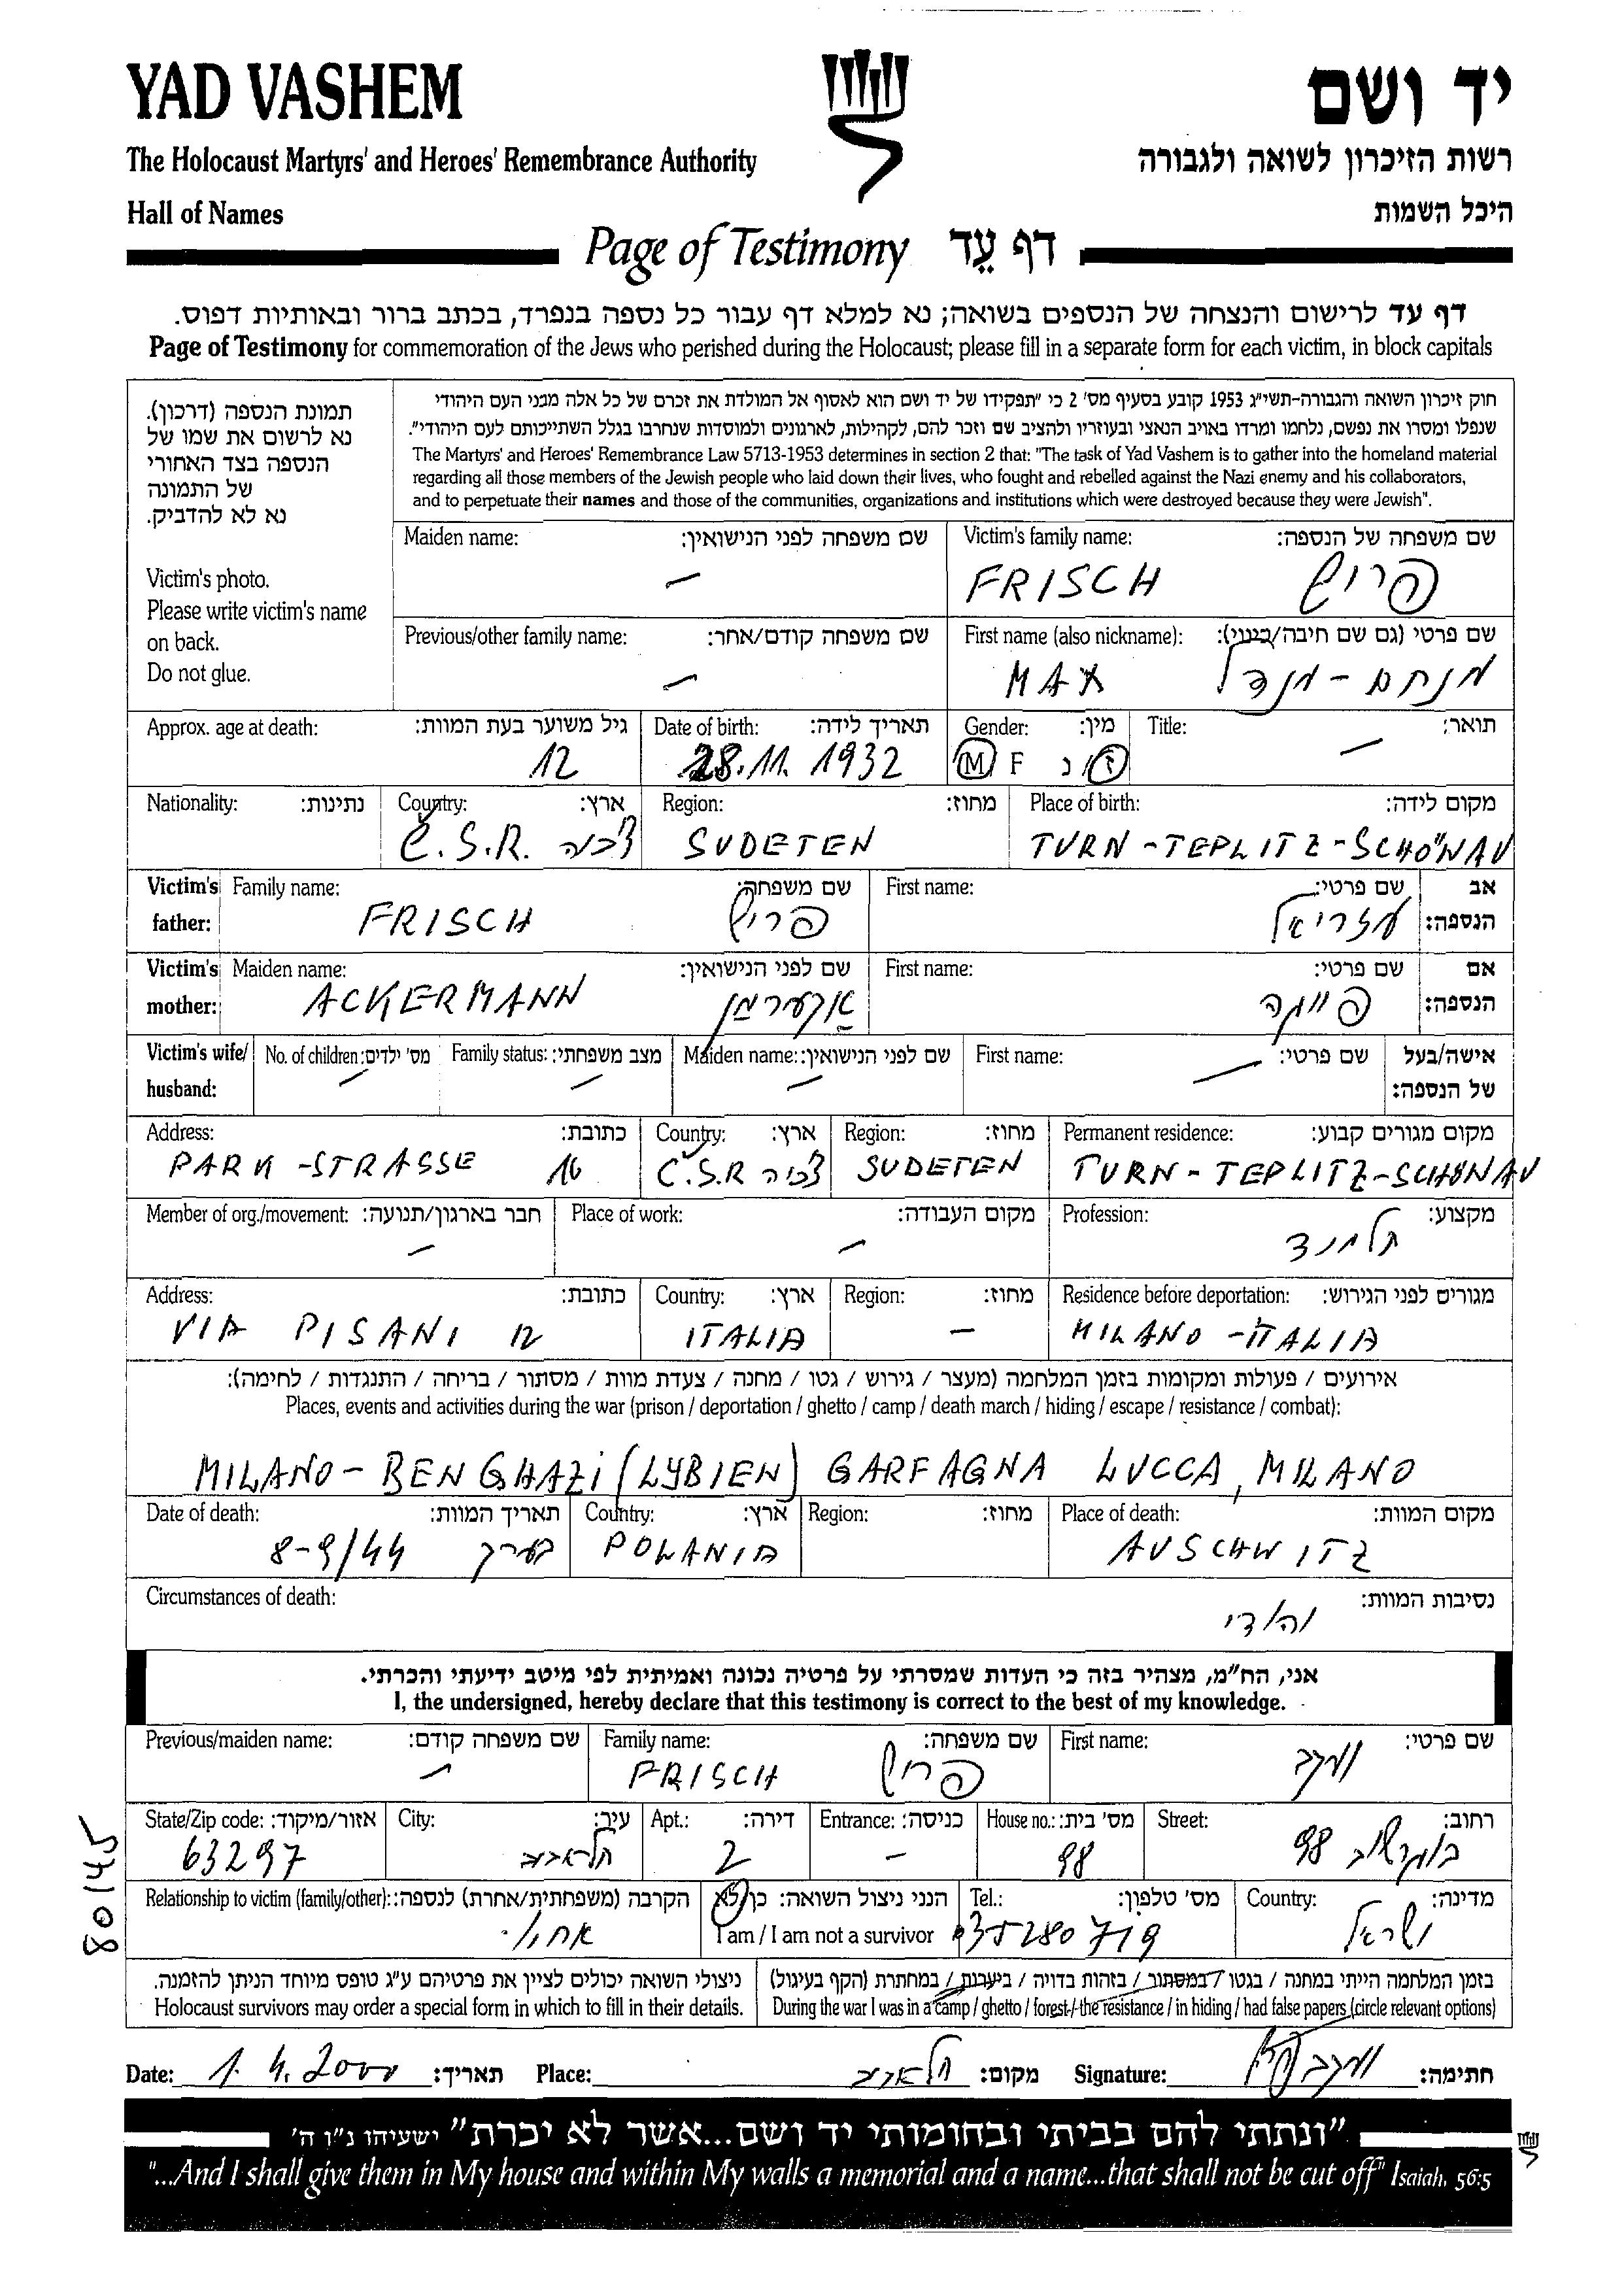 YAD VASHEM
יד ושם
The Holocaust Martyrs' and Heroes' Remembrance Authority
רשות הזיכרון לשואה ולגבורה
Hall of Names
היכל השמות
Page of Testimony דף עֵד
דף עד לרישום והנצחה של הנספים בשואה; נא למלא דף עבור כל נספה בנפרד, בכתב ברור ובאותיות דפוס.
Page of Testimony for commemoration of the Jews who perished during the Holocaust; please fill in a separate form for each victim, in block capitals
תמונת הנספה (דרכון).
נא לרשום את שמו של
הנספה בצד האחורי
של התמונה
נא לא להדביק.
Victim's photo.
Please write victim's name
on back.
Do not glue.
חוק זיכרון השואה והגבורה-תשי"ג 1953 קובע בסעיף מס' 2 כי "תפקידו של יד ושם הוא לאסוף אל המולדת את זכרם של כל אלה מבני העם היהודי
שנפלו ומסרו את נפשם, נלחמו ומרדו באויב הנאצי ובעוזריו ולהציב שם וזכר להם, לקהילות, לארגונים ולמוסדות שנחרבו בגלל השתייכותם לעם היהודי".
The Martyrs' and Heroes' Remembrance Law 5713-1953 determines in section 2 that: "The task of Yad Vashem is to gather into the homeland material
regarding all those members of the Jewish people who laid down their lives, who fought and rebelled against the Nazi enemy and his collaborators,
and to perpetuate their names and those of the communities, organizations and institutions which were destroyed because they were Jewish".
Maiden name: שם משפחה לפני הנישואין: Victim's family name: שם משפחה של הנספה:
– FRISCH פריש
Previous/other family name: שם משפחה קודם/אחר: First name (also nickname): שם פרטי (גם שם חיבה/כינוי):
– MAX מנחם - מנדל
Approx. age at death: גיל משוער בעת המוות: Date of birth: תאריך לידה: Gender: מין: Title: תואר:
12 28.11.1932 M F ז / נ –
Nationality: נתינות: Country: ארץ: Region: מחוז: Place of birth: מקום לידה:
Č.S.R. צ'כיה SUDETEN TURN - TEPLITZ - SCHÖNAU
Victim's father: Family name: שם משפחה: First name: שם פרטי: אב הנספה:
FRISCH פריש עזריאל
Victim's mother: Maiden name: שם לפני הנישואין: First name: שם פרטי: אם הנספה:
ACKERMANN אקערמן פייגה
Victim's wife/ husband: No. of children: מס' ילדים: Family status: מצב משפחתי: Maiden name: שם לפני הנישואין: First name: שם פרטי: אישה/בעל של הנספה:
– – – –
Address: כתובת: Country: ארץ: Region: מחוז: Permanent residence: מקום מגורים קבוע:
PARK - STRASSE 16 Č.S.R צ'כיה SUDETEN TURN - TEPLITZ - SCHÖNAU
Member of org./movement: חבר בארגון/תנועה: Place of work: מקום העבודה: Profession: מקצוע:
– – תלמיד
Address: כתובת: Country: ארץ: Region: מחוז: Residence before deportation: מגורים לפני הגירוש:
VIA PISANI 12 ITALIA – MILANO - ITALIA
אירועים / פעולות ומקומות בזמן המלחמה (מעצר / גירוש / גטו / מחנה / צעדת מוות / מסתור / בריחה / התנגדות / לחימה):
Places, events and activities during the war (prison / deportation / ghetto / camp / death march / hiding / escape / resistance / combat):
MILANO - BENGHAZI (LYBIEN) GARFAGNA LUCCA, MILANO
Date of death: תאריך המוות: Country: ארץ: Region: מחוז: Place of death: מקום המוות:
8-9/44 בערך POLANIA AUSCHWITZ
Circumstances of death: נסיבות המוות:
אני, הח"מ, מצהיר בזה כי העדות שמסרתי על פרטיה נכונה ואמיתית לפי מיטב ידיעתי והכרתי.
I, the undersigned, hereby declare that this testimony is correct to the best of my knowledge.
Previous/maiden name: שם משפחה קודם: Family name: שם משפחה: First name: שם פרטי:
– FRISCH פריש
State/Zip code: אזור/מיקוד: City: עיר: Apt.: דירה: Entrance: כניסה: House no.: מס' בית: Street: רחוב:
63297 תל אביב 2 – 98 בוגרשוב 98
Relationship to victim (family/other): הקרבה (משפחתית/אחרת) לנספה: הנני ניצול השואה: כן/לא Tel.: מס' טלפון: Country: מדינה:
I am / I am not a survivor 035280719 ישראל
ניצולי השואה יכולים לציין את פרטיהם ע"ג טופס מיוחד הניתן להזמנה. בזמן המלחמה הייתי במחנה / בגטו / במסתור / בזהות בדויה / ביערות / במחתרת (הקף בעיגול)
Holocaust survivors may order a special form in which to fill in their details. During the war I was in a camp / ghetto / forest / the resistance / in hiding / had false papers (circle relevant options)
Date: 1.4.2000 תאריך: Place: תל אביב מקום: Signature: חתימה:
"ונתתי להם בביתי ובחומותי יד ושם...אשר לא יכרת" ישעיהו נ"ו ה'
"...And I shall give them in My house and within My walls a memorial and a name...that shall not be cut off" Isaiah, 56:5
80145